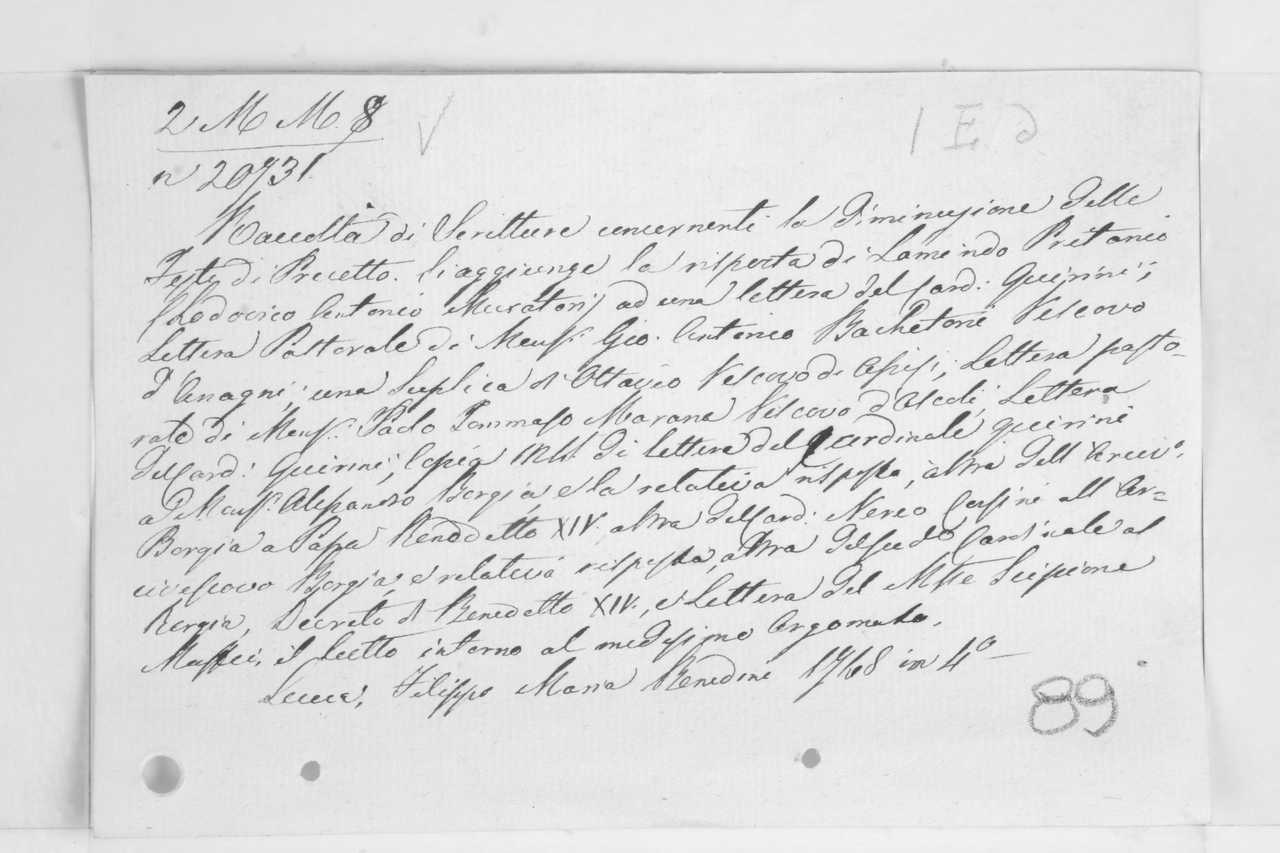 2 M M. 8 V 1 E d
n 20731
Raccolta di Scritture concernenti la diminuzione delle
Feste di Precetto. Si aggiunge la risposta di Lamindo Pritanio
(Lodovico Antonio Muratori) ad una lettera del Card: Quirini;
Lettera Pastorale di Mons.r Gio: Antonio Bachetoni Vescovo
d'Anagni; una Suplica di Ottavio Vescovo di Assisi; Lettera pasto-
rale di Mons.r Paolo Tommaso Marana Vescovo d'Ascoli, Lettera
del Card: Quirini; Copia di lettera del Cardinale Quirini
a Mons.r Alessandro Borgia, e la relativa risposta, altra dell'Arciv.o
Borgia a Papa Benedetto XIV. altra del Card: Nereo Corsini all'Ar=
civescovo Borgia, e relativa risposta, altra del sud.o Cardinale al
Borgia, Decreto di Benedetto XIV., e Lettera del Mse Scipione
Maffei, il tutto intorno al medesimo argomento.
Lucca, Filippo Maria Benedini 1748 in 4.o
89